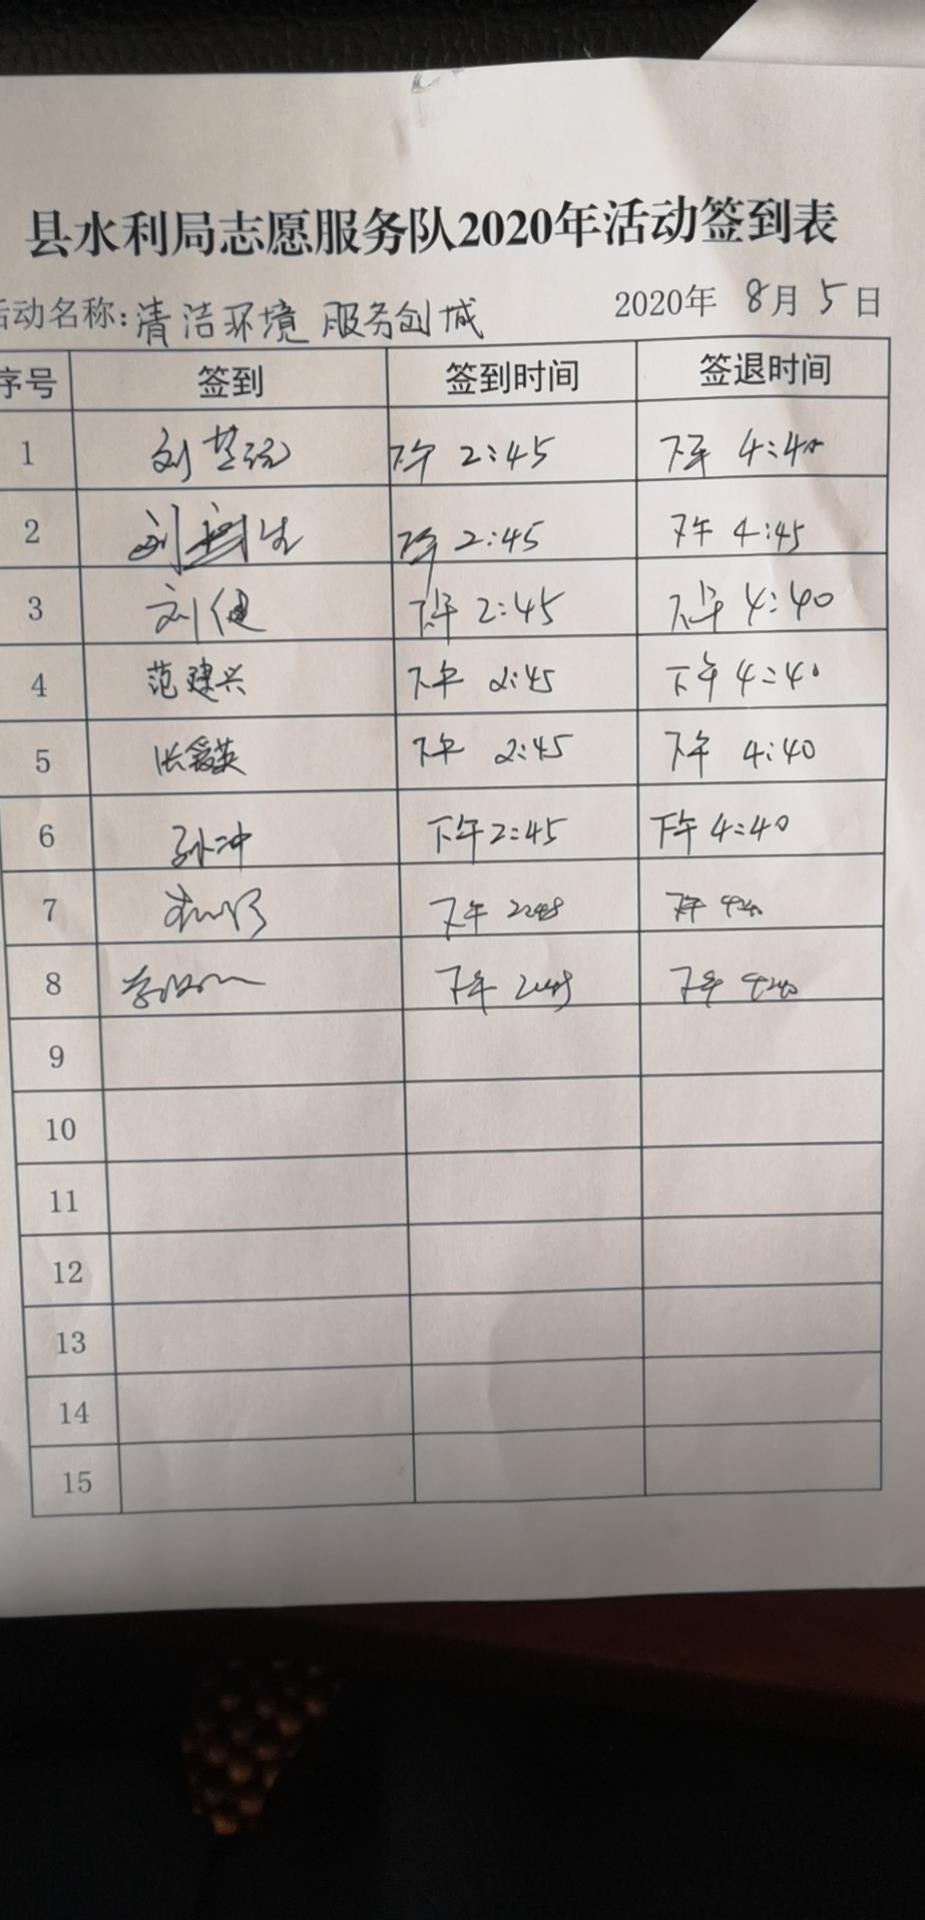 县水利局志愿服务队2020年活动签到表
活动名称:清洁环境 服务创城 2020年 8月5日
序号 签到 签到时间 签退时间
1 刘 下午 2:45 下午 4:40
2 刘 生 下午 2:45 下午 4:45
3 刘健 下午 2:45 下午 4:40
4 范建兴 下午 2:45 下午 4:40
5 张爱英 下午 2:45 下午 4:40
6 孙冲 下午 2:45 下午 4:40
7 下午 下午
8 下午 下午
9
10
11
12
13
14
15